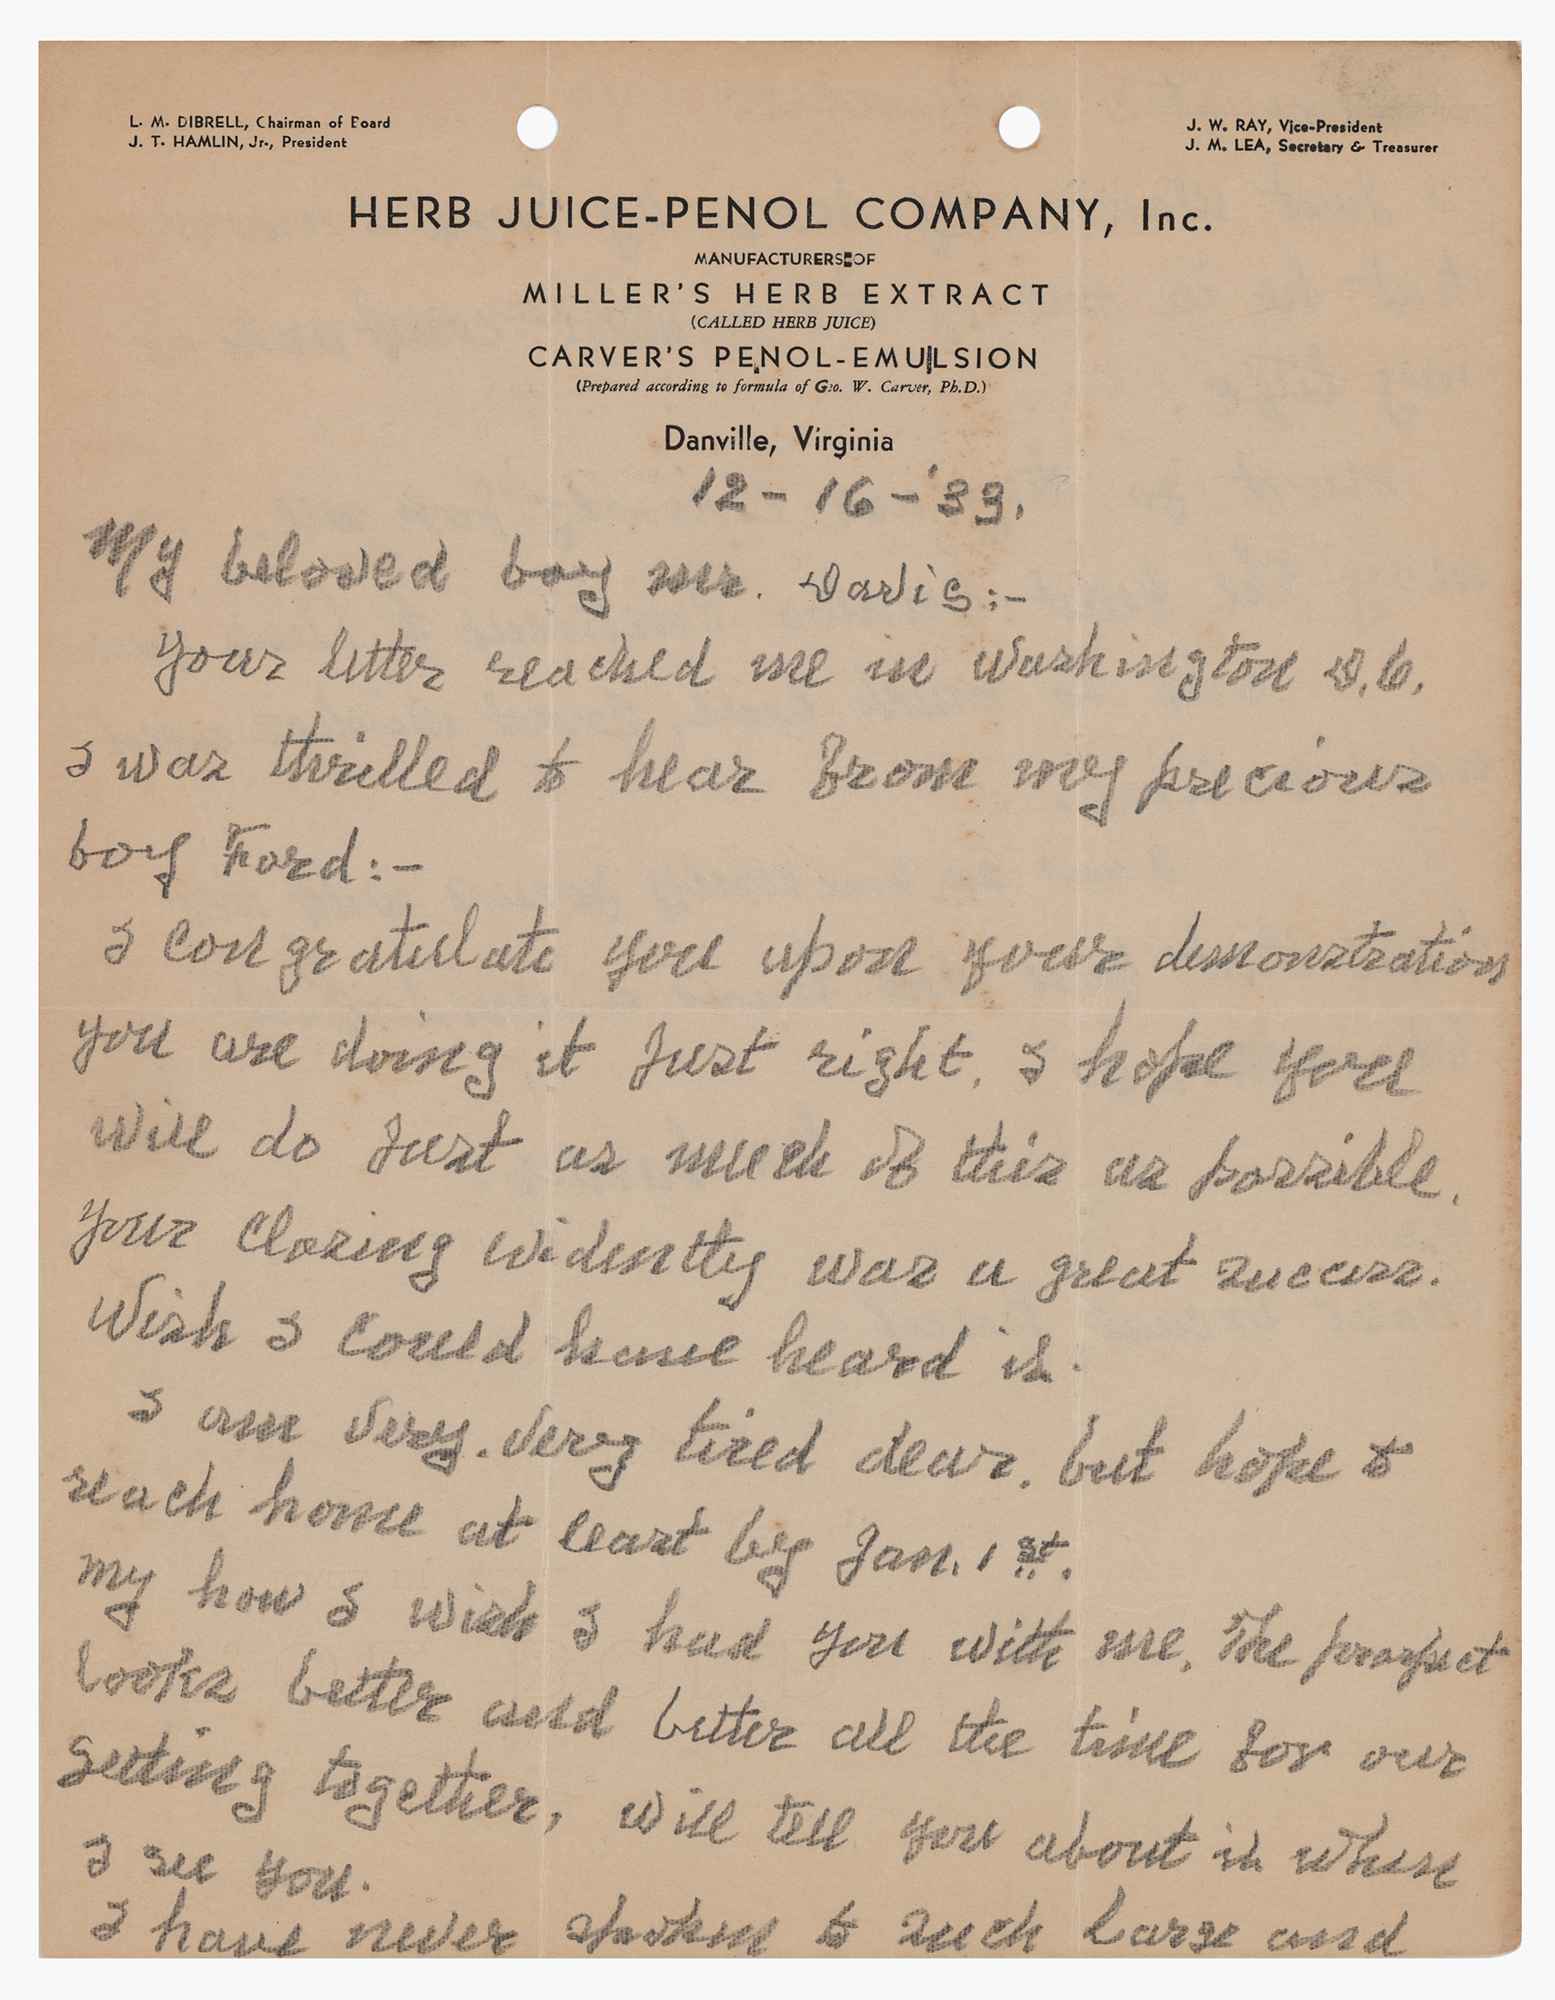 L. M. DIBRELL, Chairman of Board
J. T. HAMLIN, Jr., President
J. W. RAY, Vice-President
J. M. LEA, Secretary & Treasurer
HERB JUICE-PENOL COMPANY, Inc.
MANUFACTURERS OF
MILLER'S HERB EXTRACT
(CALLED HERB JUICE)
CARVER'S PENOL-EMULSION
(Prepared according to formula of Geo. W. Carver, Ph.D.)
Danville, Virginia
12-16-'33.
My beloved boy Mr. Davis:-
Your letter reached me in Washington D.C.
I was thrilled to hear from my precious
boy Ford:-
I congratulate you upon your demonstration
you are doing it just right. I hope you
will do just as much of this as possible.
Your closing evidently was a great success.
Wish I could have heard it.
I am very. very tired dear. but hope to
reach home at least by Jan. 1st.
My how I wish I had you with me. The prospect
looks better and better all the time for our
getting together, will tell you about it when
I see you.
I have never spoken to such large and